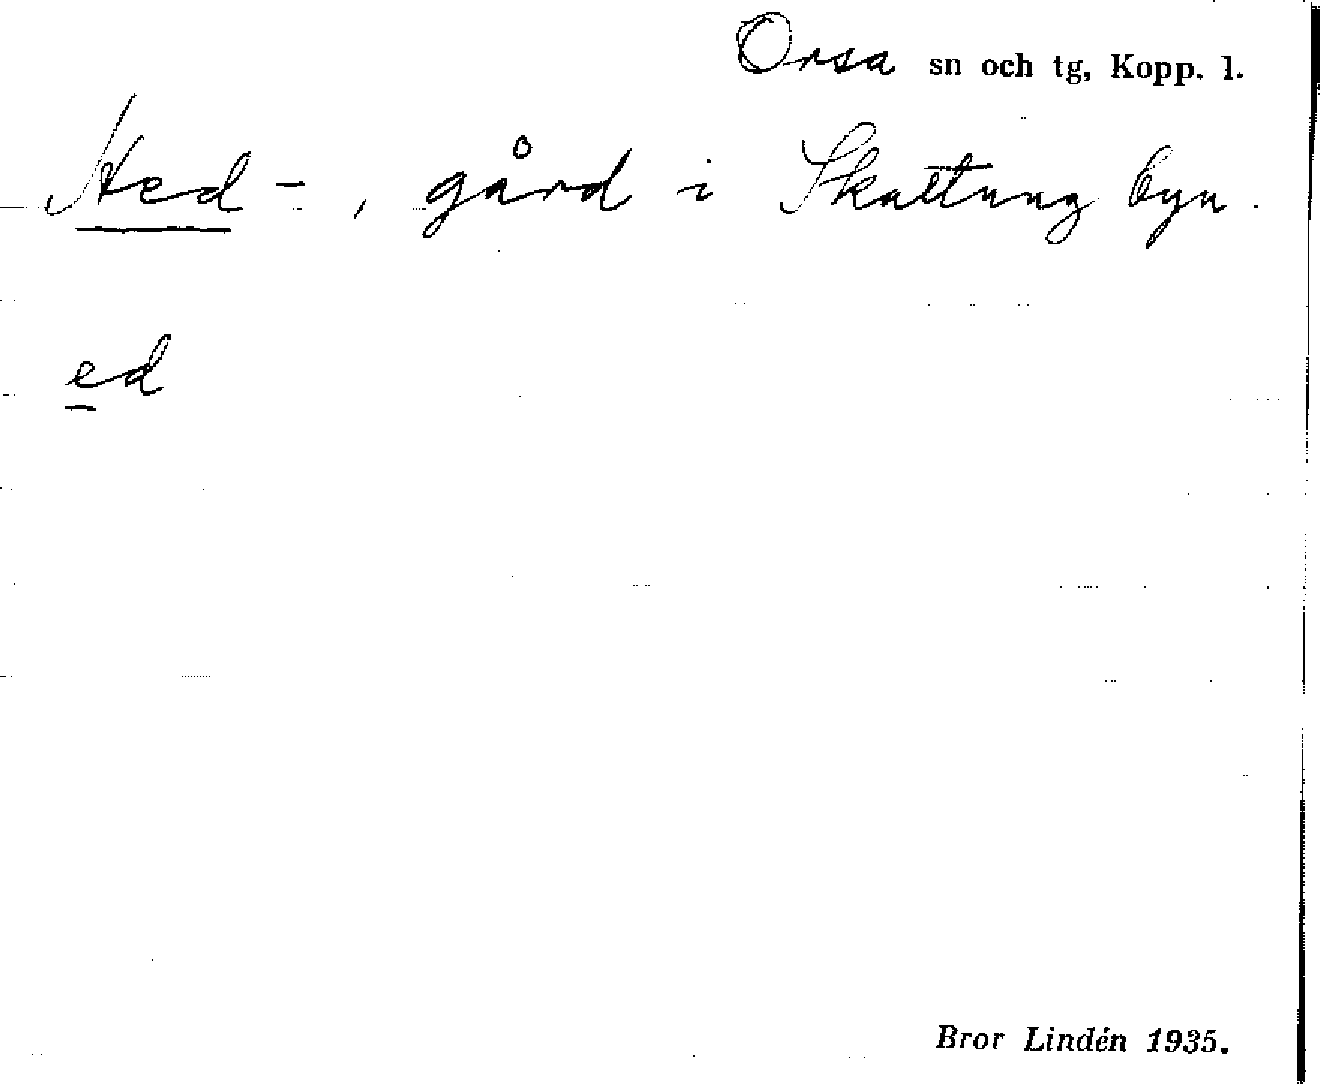 Orsa sn och tg, Kopp. l.
Hed - , gård i Skattungbyn.
ed
Bror Lindén 1935.